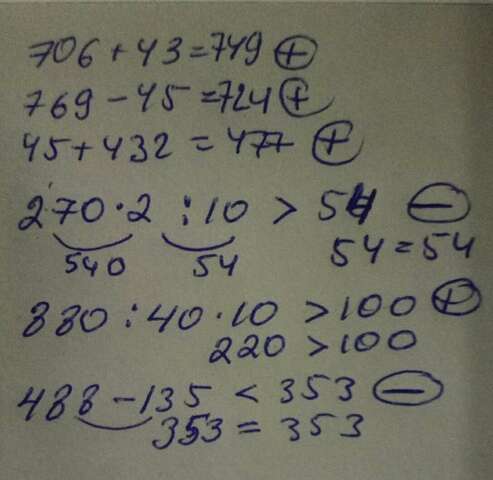 706 + 43 = 749 ⊕
769 - 45 = 724 ⊕
45 + 432 = 477 ⊕
270 · 2 : 10 > 54 ⊖
540 54 54 = 54
880 : 40 · 10 > 100 ⊕
220 > 100
488 - 135 < 353 ⊖
353 = 353